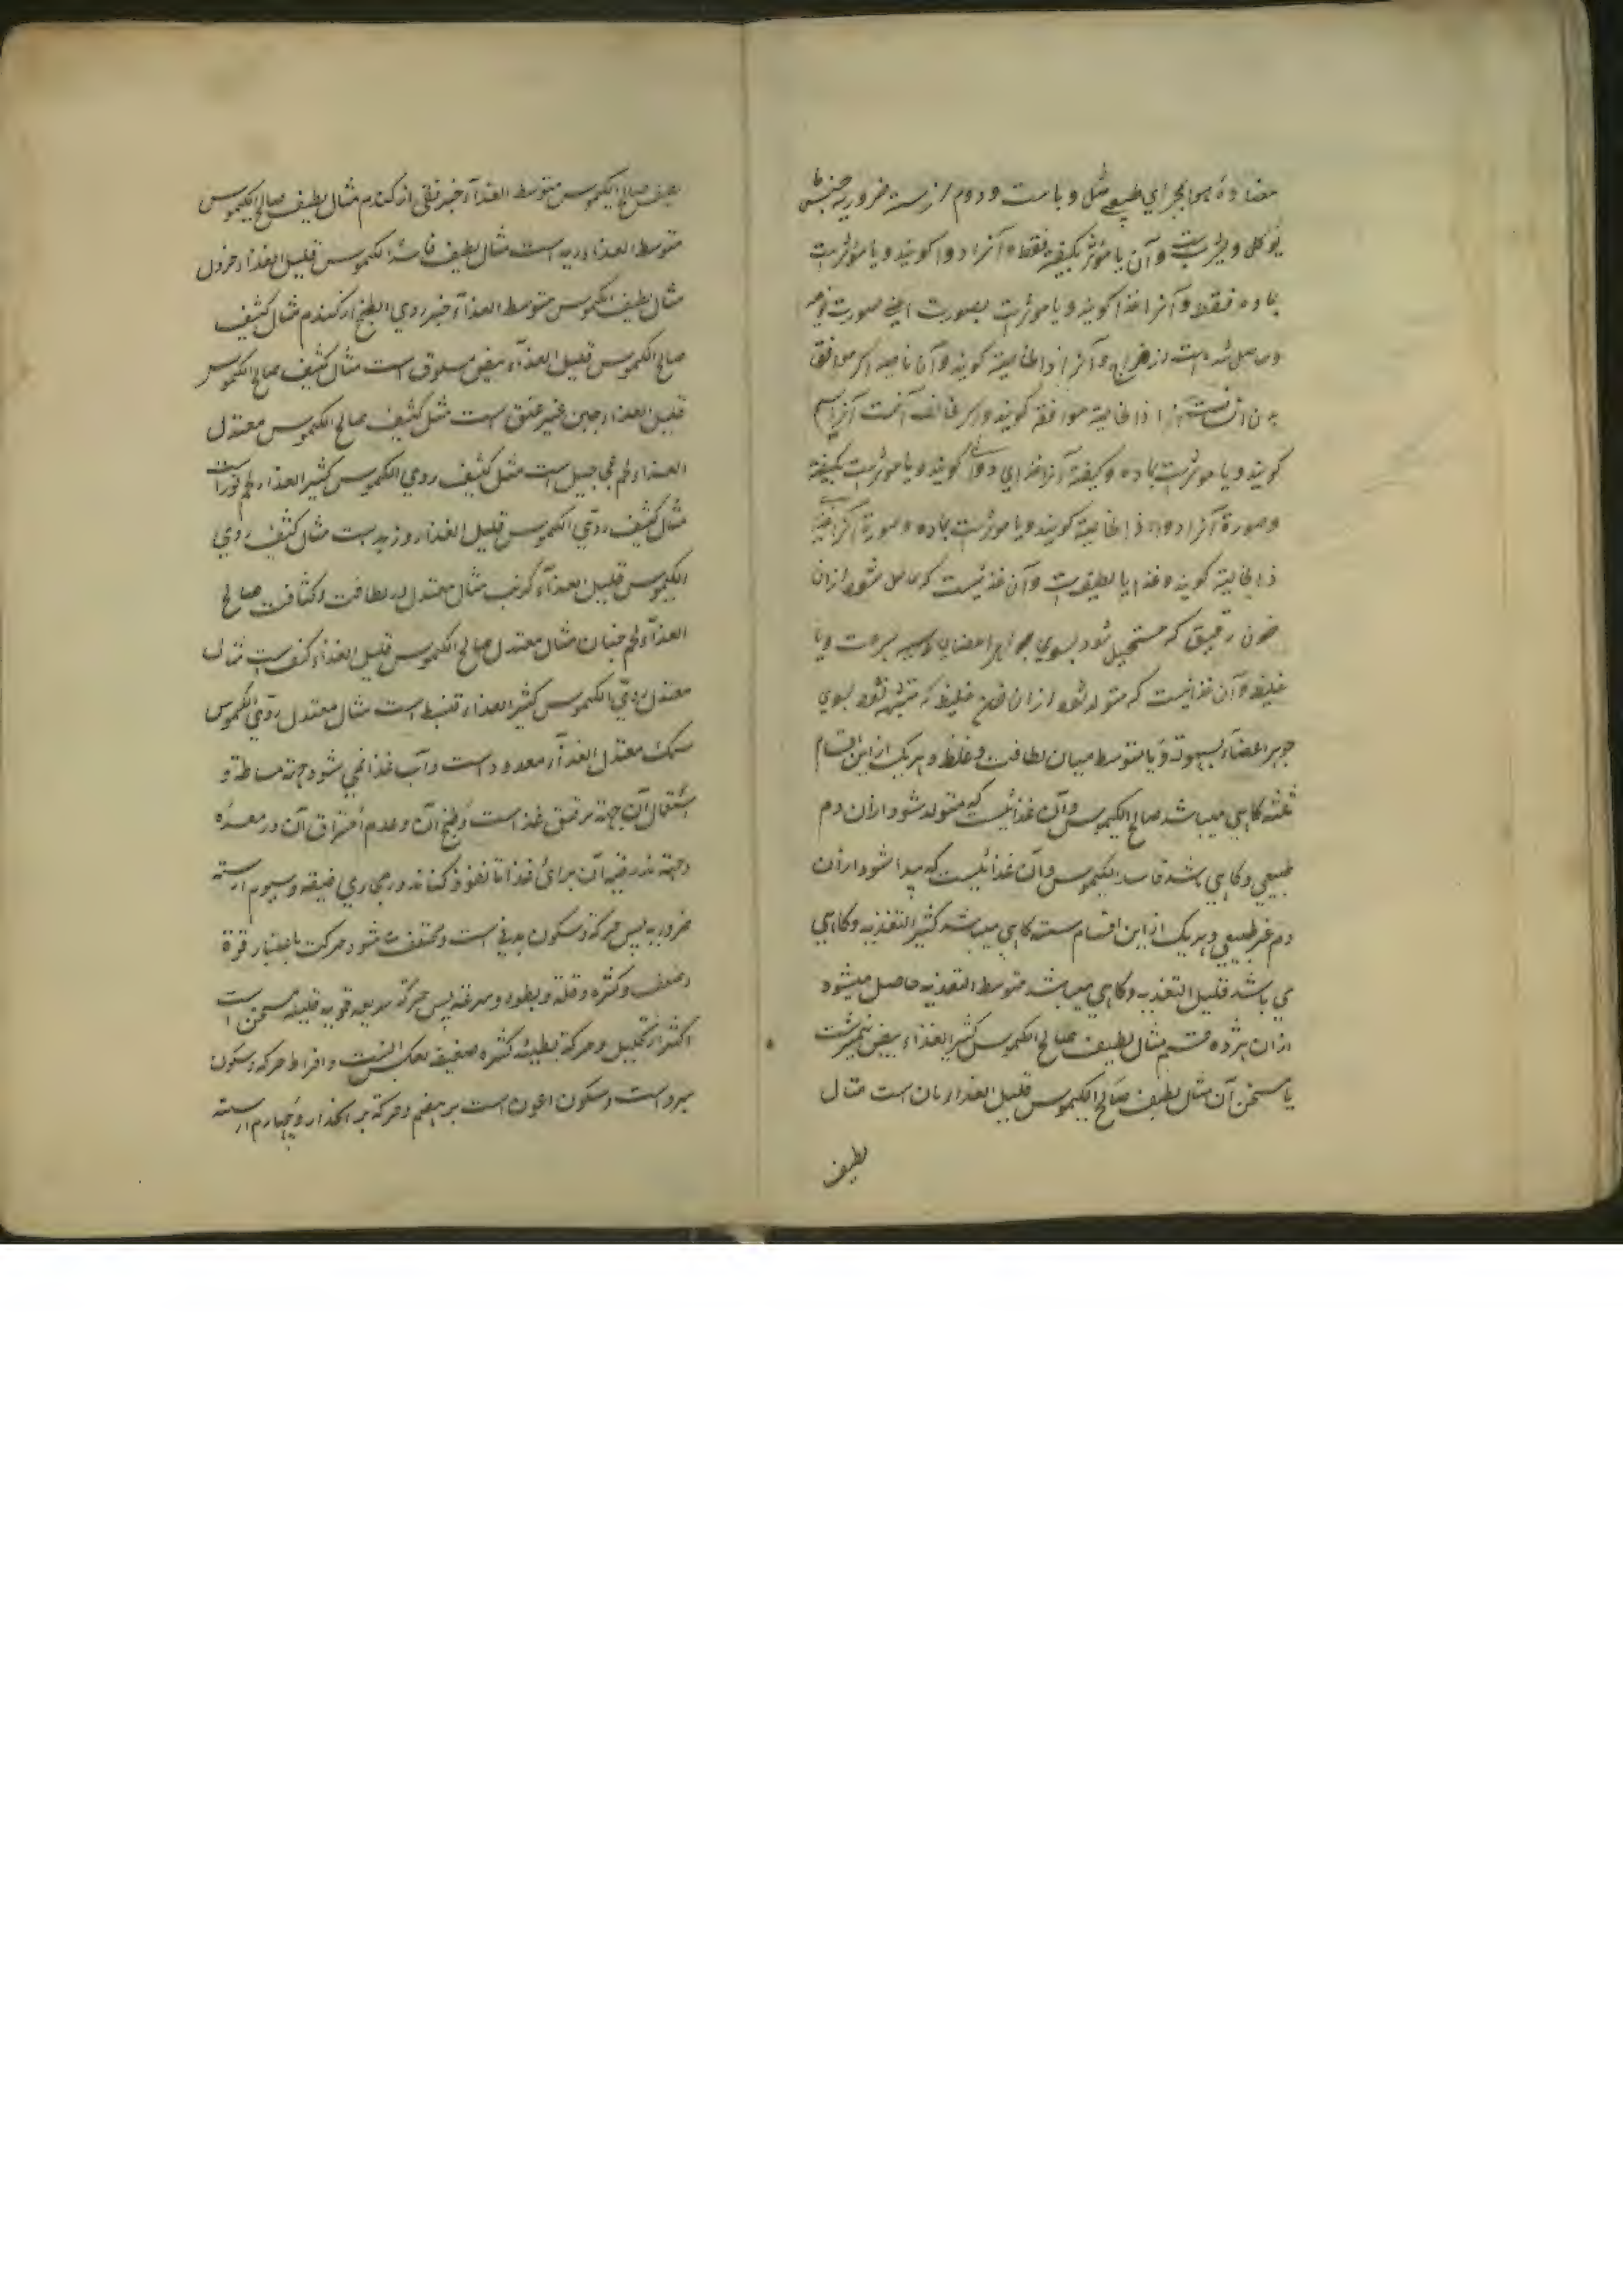 مضاده هوا مجرای طبیعی مثل وباست و دوم از سته ضروریه جنس
یؤکل و یشرب است و آن یا مؤثر بکیفیة فقط و آنرا دوا کویند و یا مؤثرست
بماده فقط و آنرا غذا کویند و یا مؤثرست بصورت اعنی صورت نوعیه
و حاصل شده است از مزاج و آنرا ذا الخاصیة کویند و آن ناصیه اکر موافق
بدن انسانست آنرا ذا الخاصیة موافقه کویند و اکر مخالف آنست آنرا سم
کویند و یا مؤثرست بماده و کیفیة آنرا غذای دوائی کویند و یا مؤثرست بکیفیة
و صورة آنرا دواء ذا الخاصیة کویند و یا مؤثرست بماده و صورة آنرا غذاء
ذا الخاصیة کویند و غذا یا لطیفست و آن غذائیست که حاصل شود از ان
خون رقیق که مستحیل شود بسوی جواهر اعضای بسرعت و یا
غلیظ و آن غذائیست که متولد شود از ان خون غلیظ که متشبه نشود بسوی
جوهر اعضاء بسهوله و یا متوسط میان لطافت و غلظ و هر یک از این اقسام
ثلثه کاهی میباشد صالح الکیموس و آن غذائیست که متولد شود از ان دم
طبیعی و کاهی باشد فاسد الکیموس و آن غذائیست که پیدا شود از ان
دم غیر طبیعی و هر یک از این اقسام سته کاهی میباشد کثیر التغذیه و کاهی
می باشد قلیل التغذیه و کاهی میباشد متوسط التغذیه حاصل میشود
از ان هژده قسم مثال لطیف صالح الکیموس کثیر الغذاء بیض نیمبرشت
یا مسخن آن مثال لطیف صالح الکیموس قلیل الغذا رمان است مثال
لطیف
لطیف صالح الکیموس متوسط الغذاء خبز نقی از کندم مثال لطیف صالح الکیموس
متوسط الغذاء ریه است مثال لطیف فاسد الکیموس قلیل الغذا خردل
مثال لطیف الکیموس متوسط الغذاء خبز ردی الطبخ از کندم مثال کثیف
صالح الکیموس قلیل الغذاء بیض مسلوق است مثال کثیف صالح الکیموس
قلیل الغذاء جبن غیر عتق است مثل کثیف صالح الکیموس معتدل
الغذاء لحم عجاجیل است مثل کثیف ردی الکیموس کثیر الغذاء لحم ثورانست
مثال کثیف ردی الکیموس قلیل الغذاء است مثال کثیف ردی
الکیموس قلیل الغذاء کرنب مثال معتدل در لطافت و کثافت صالح
الغذاء لحم مثال معتدل صالح الکیموس قلیل الغذاء است مثال
معتدل ردی الکیموس کثیر الغذاء قنبیط است مثال معتدل ردی الکیموس
سمک معتدل الغذاء معدود است و آب غذا نمی شود جهة بساطة و
استعمال آن جهة ترقیق غذا است و طبخ آن و عدم احتراق آن در معده
و جهة بذرقیه آن برای غذا تا نفوذ کناند در مجاری ضیقه و سیوم از سته
ضروریه پس حرکة و سکون بدنی است و مختلف میشود حرکت باعتبار قوة
و ضعف و کثرة و قلة و بطوء و سرعة پس حرکة سریعه قویه قلیله مسخن است
اکثر از تحلیل و حرکة بطیئه کثیره ضعیفه بعکس اینست و افراط حرکة و سکون
مبرد است و سکون اعون است بر هضم و حرکة بر انحدار و چهارم از سته